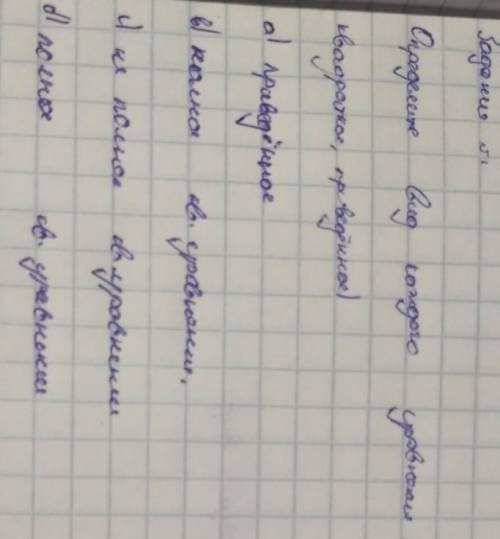 Задание №1
Определите вид каждого уравнения
квадратное, приведённое)
a) приведённое
b) полное кв. уравнение.
c) не полное кв. уравнение
d) полное кв. уравнение